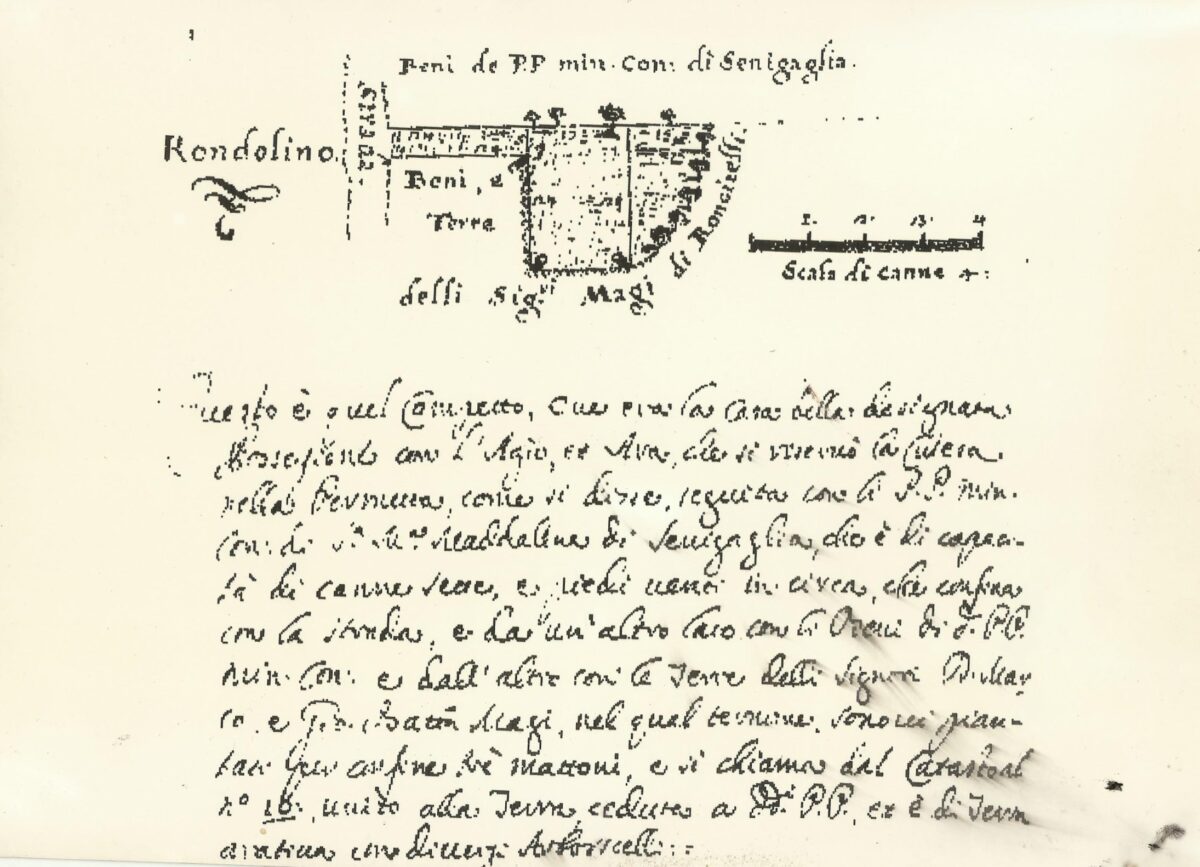 Beni de P.P min. Con: di Senigaglia.
Strada
Rondolino
Beni, e
Terre
delli Sig.ri Magi di Roncitelli
1. 2. 3. 4
Scala di canne 4:
Questo è quel Campetto, era la Casa della designata
Possessione con l'Agio, et Ara, che si riservò la
nella Permutta, come si disse, seguita con li P.P. min.
con: di S.ta M.a Maddalena di Senigaglia, che è di capaci-
tà di canne sette, e piedi venti in circa, che confina
con la strada, e da un'altro lato con li Beni di d.i P.P.
min. Con: e dall'altro con le Terre delli Signori D. Mar
co, e Gio. Batta Magi, nel qual termine, sonovi pian-
tati per confine trè mattoni, e si chiama dal Catasto al
n.o 18:, unito alla Terra ceduta a dd.i P.P., et è di Terra
arativa con diversi Arborscelli: